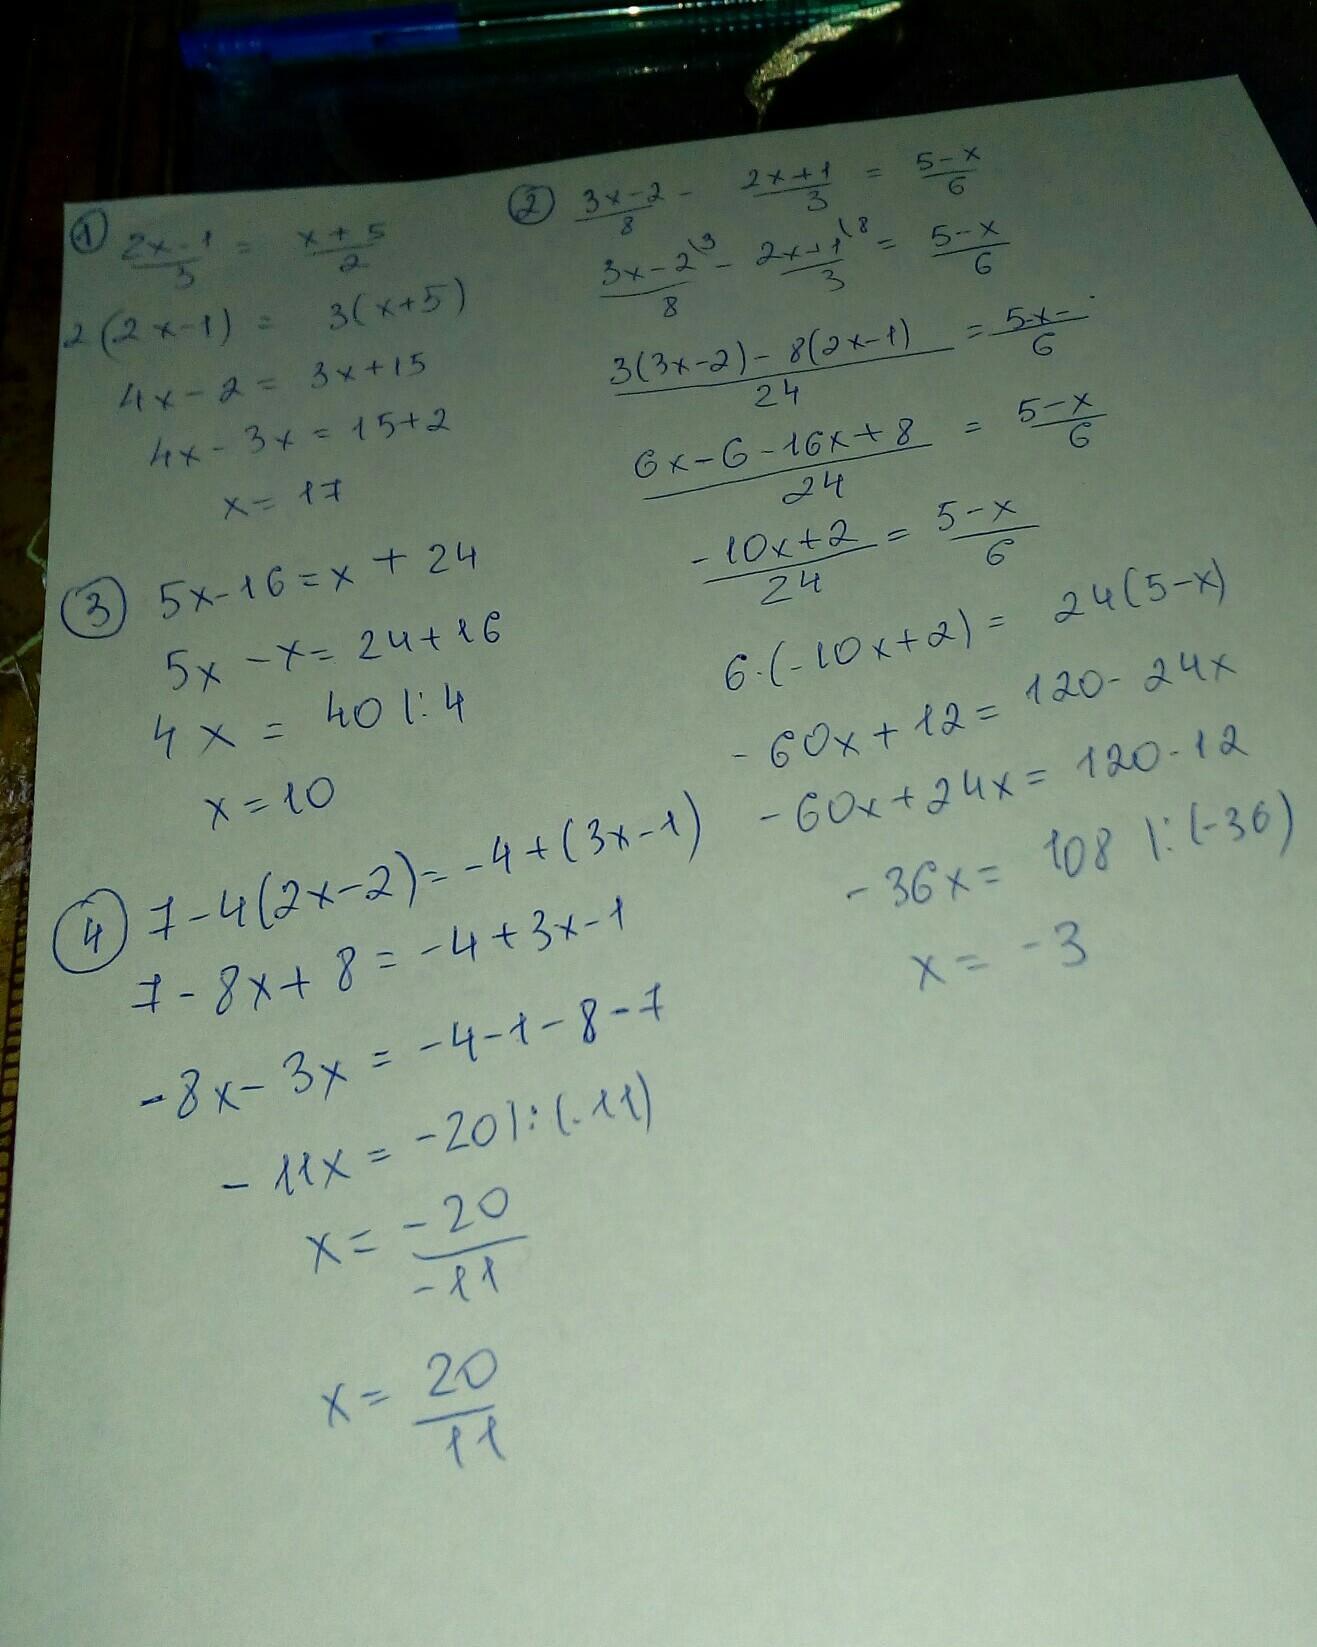 ① 2x-1/3 = x+5/2
2(2x-1) = 3(x+5)
4x-2 = 3x+15
4x-3x = 15+2
x = 17
② 3x-2/8 - 2x+1/3 = 5-x/6
3x-2\3/8 - 2x+1\8/3 = 5-x/6
3(3x-2)-8(2x-1)/24 = 5x-/6
6x-6-16x+8/24 = 5-x/6
-10x+2/24 = 5-x/6
6·(-10x+2) = 24(5-x)
-60x+12 = 120-24x
-60x+24x = 120-12
-36x = 108 |:(-36)
x = -3
③ 5x-16=x+24
5x-x=24+16
4x = 40 |:4
x=10
④ 7-4(2x-2)=-4+(3x-1)
7-8x+8=-4+3x-1
-8x-3x = -4-1-8-7
-11x = -20 |:(-11)
x = -20/-11
x = 20/11